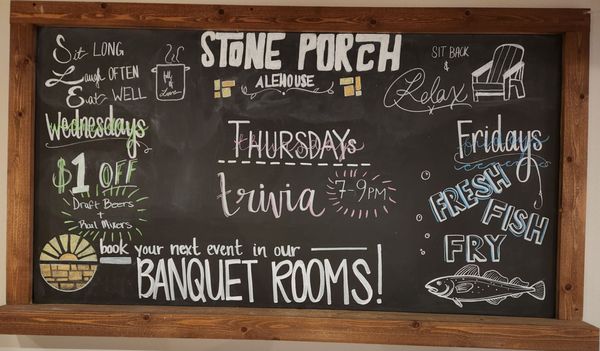 Sit LONG
Laugh OFTEN
Eat WELL
full of Love
STONE PORCH
ALEHOUSE
SIT BACK
&
Relax
Wednesdays
$1 OFF
Draft Beers
+
Rail Mixers
THURSDAYS
trivia 7-9PM
Fridays
FRESH
FISH
FRY
book your next event in our
BANQUET ROOMS!